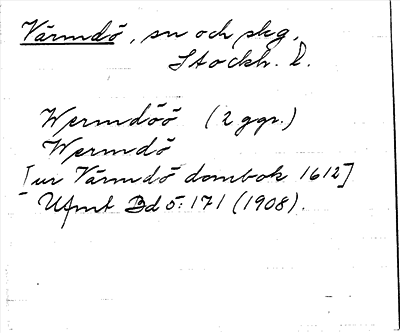 Värmdö, sn och skg,
Stockh. l.
Wermdöö (2 ggr.)
Wermdö
[ur Värmdö dombok 1612]
Ufmt Bd 5:171 (1908).